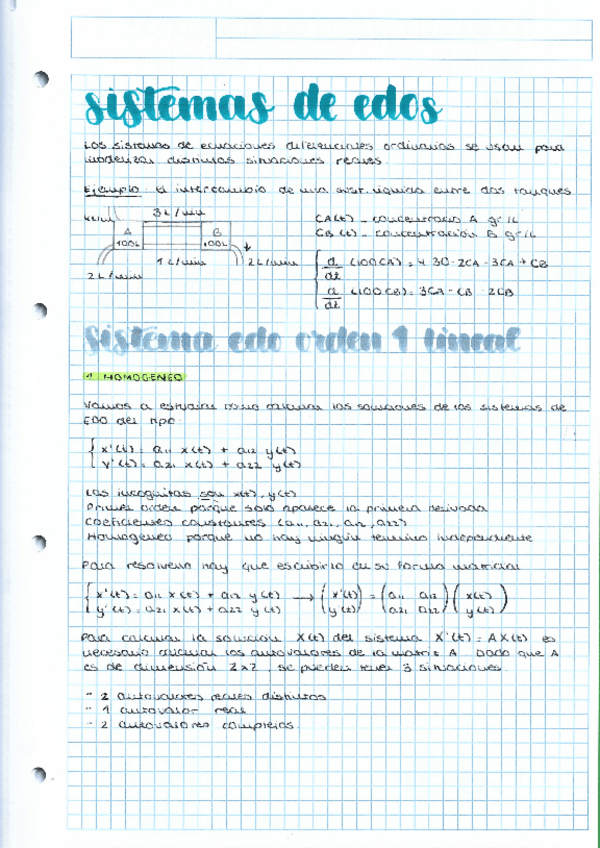 sistemas de edos
Los sistemas de ecuaciones diferenciales ordinarias se usan para
modelizar distintas situaciones reales.
Ejemplo: el intercambio de una sust. líquida entre dos tanques
3L/min
4L/min
A
100L
B
100L
2L/min
1L/min
2L/min
CA(t) - concentración A gr/L
CB(t) - concentración B gr/L
d/dt (100CA) = 4·30 - 2CA - 3CA + CB
d/dt (100CB) = 3CA - CB - 2CB
Sistema edo orden 1 lineal
1 HOMOGENEO
Vamos a estudiar como calcular las soluciones de los sistemas de
EDO del tipo
x'(t) = a11 x(t) + a12 y(t)
y'(t) = a21 x(t) + a22 y(t)
Las incognitas son x(t), y(t)
Primer orden porque solo aparece la primera derivada
Coeficientes constantes (a11, a21, a12, a22)
Homogéneo porque no hay ningún termino independiente
Para resolverlo hay que escribirlo en su forma matricial
x'(t) = a11 x(t) + a12 y(t) → (x'(t)) = (a11 a12) (x(t))
y'(t) = a21 x(t) + a22 y(t) (y(t)) (a21 a22) (y(t))
Para calcular la solución X(t) del sistema X'(t) = AX(t) es
necesario calcular los autovalores de la matriz A. Dado que A
es de dimensión 2x2, se pueden tener 3 situaciones.
- 2 autovalores reales distintos
- 1 autovalor real
- 2 autovalores complejos.